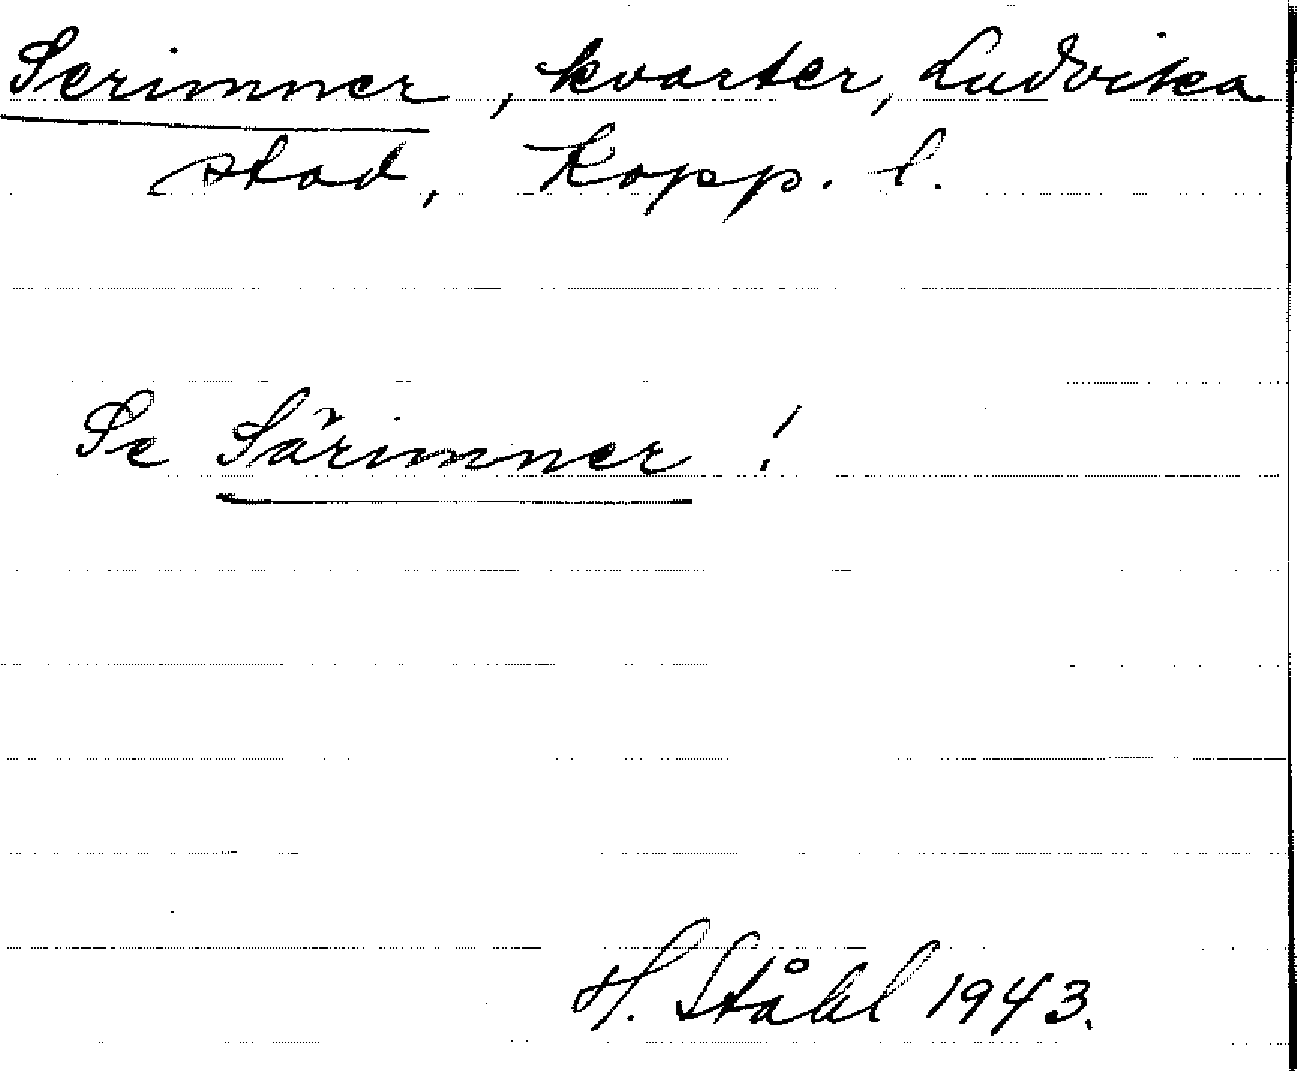 Serimner, kvarter, Ludvika
stad, Kopp. l.
Se Särimner!
H. Ståhl 1943.